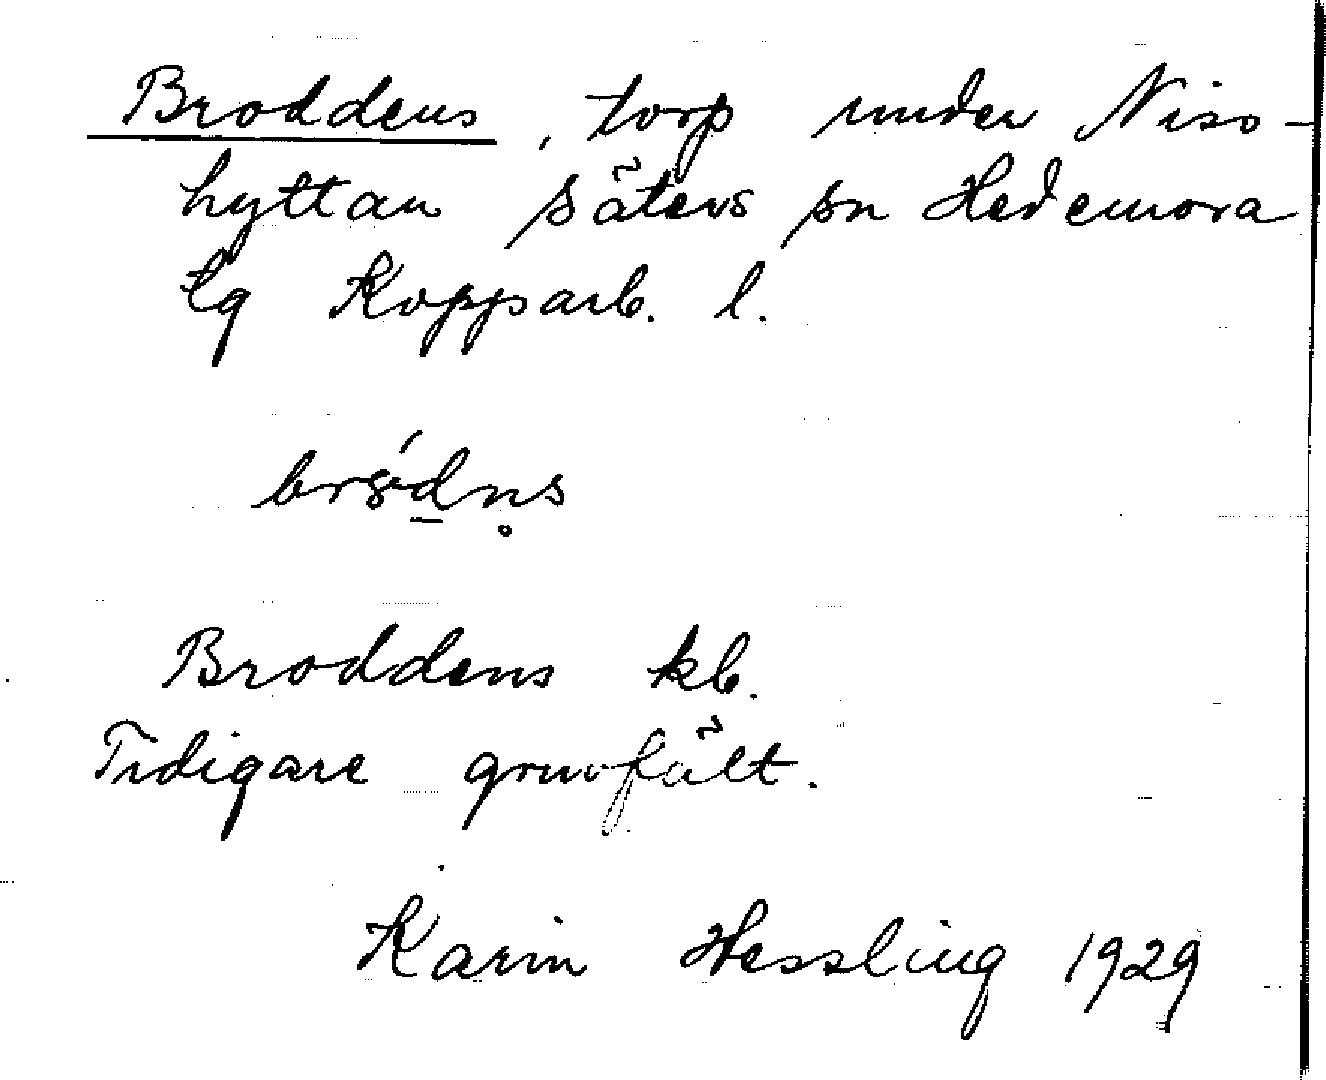 Broddens, torp under Niso-
hyttan Säters sn Hedemora
tg Kopparb. l.
Broddens kb.
Tidigare gruvfält.
Karin Hessling 1929